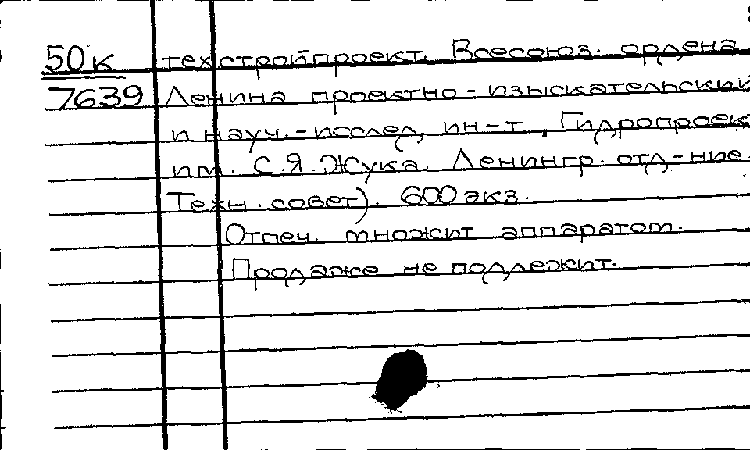 50к техстройпроект, Всесоюз. ордена
7639 Ленина проектно-изыскательский
и науч.-исслед. ин-т „Гидропроек
им. С.Я. Жука. Ленингр. отд-ние.
Техн. совет). 600 экз.
Отпеч. множит аппаратом.
Продаже не подлежит.